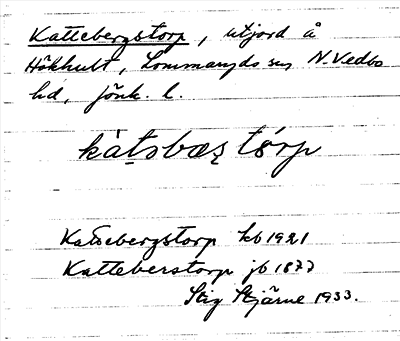 Kattebergstorp, utjord å
Hökhult, Lommaryds sn, N. Vedbo
hd, Jönk. l.
kàtsbæʂ tórp
Kattebergstorp kb 1921
Katteberstorp jb 1877
Stig Stjärne 1933.